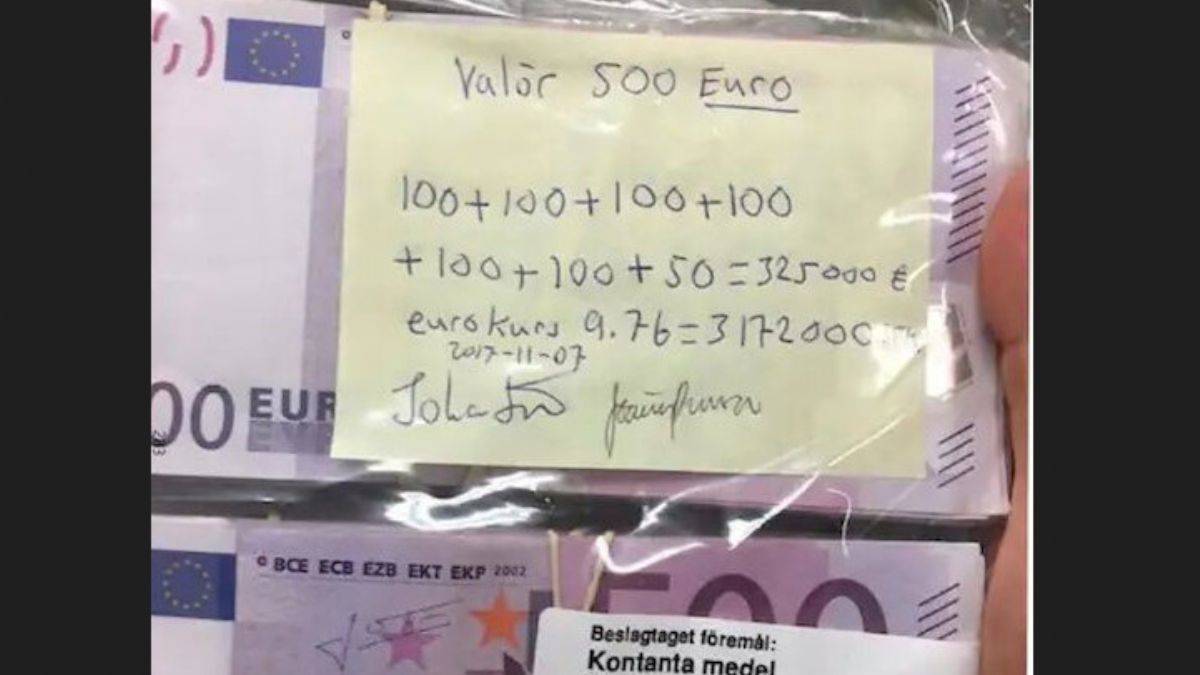 Valör 500 Euro
100+100+100+100
+100+100+50=325000 €
eurokurs 9.76=3172000
2017-11-07
00 EUR
BCE ECB EZB EKT EKP 2002
500
Beslagtaget föremål:
Kontanta medel